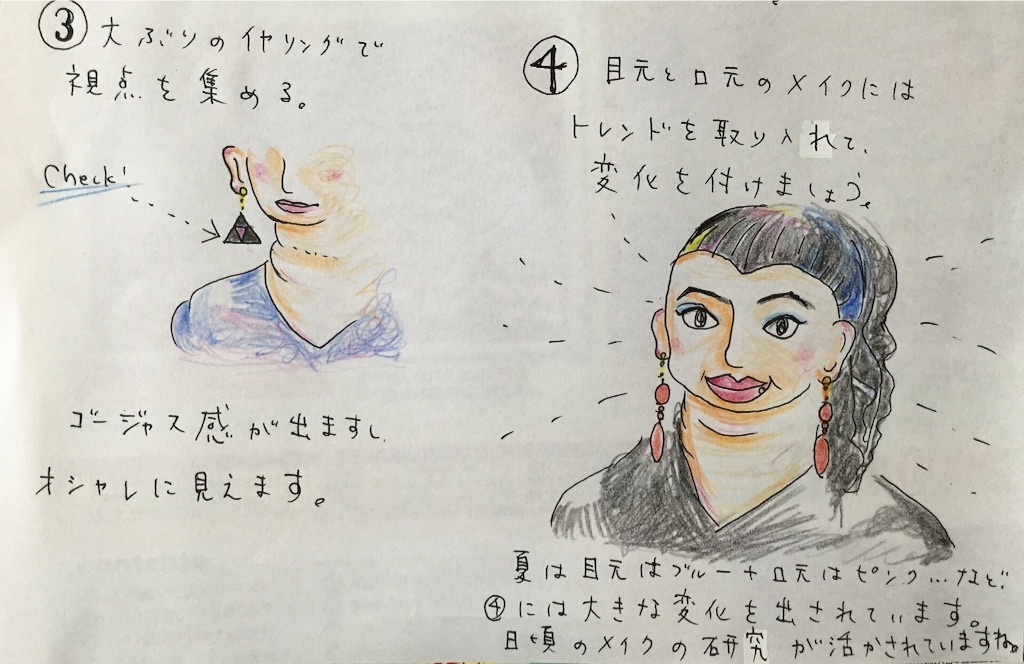 ③ 大ぶりのイヤリングで
視点を集める。
Check!
ゴージャス感が出ますし、
オシャレに見えます。
④ 目元と口元のメイクには
トレンドを取り入れて、
変化を付けましょう。
夏は目元はブルー+口元はピンク…など。
④には大きな変化を出されています。
日頃のメイクの研究が活かされていますね。